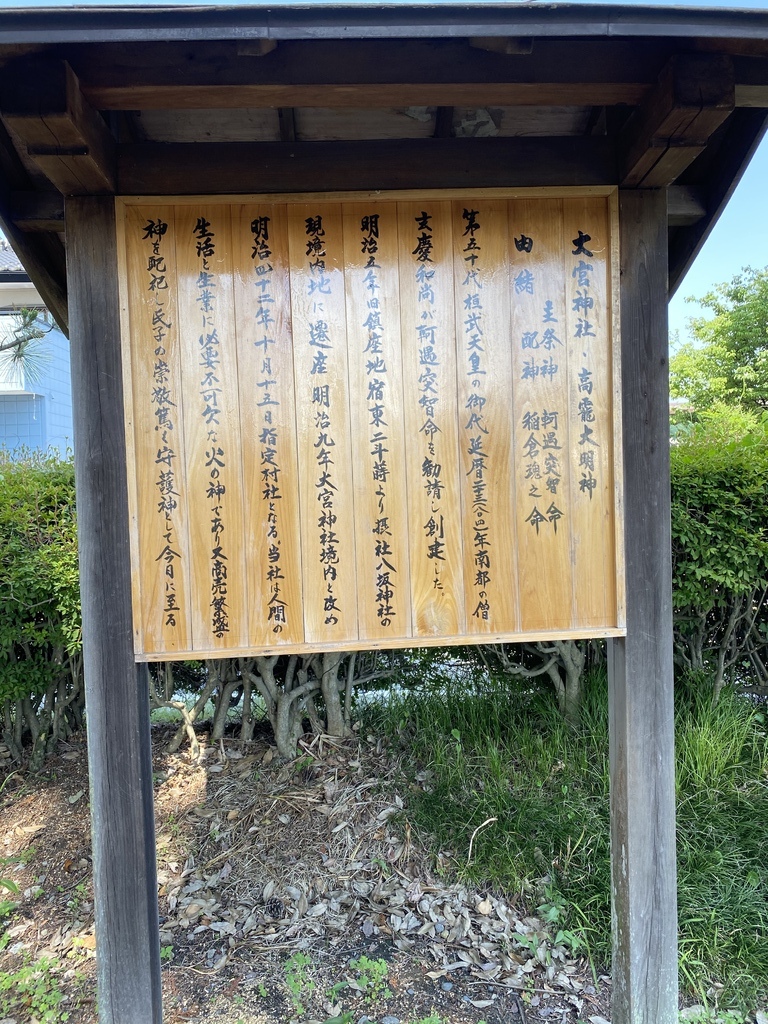 大宮神社・高龗大明神
主祭神 軻遇突智命
由緒 配神 稲倉魂之命
第五十代桓武天皇の御代延暦二十三(八〇四)年南都の僧
玄慶和尚が軻遇突智命を勧請し創建した
明治五年旧鎮座地宿東二十蒔より摂社八坂神社の
現境内地に遷座 明治九年大宮神社境内と改め
明治四十二年十月十五日指定村社となる、当社は人間の
生活と生業に必要不可欠な火の神であり又商売繁盛の
神を配祀し氏子の崇敬篤く守護神として今日に至る